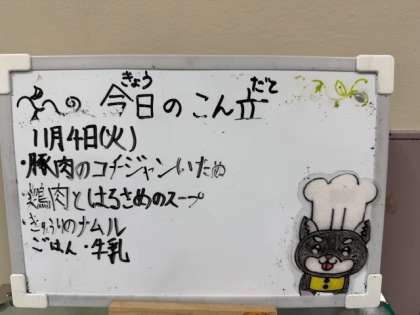 今日のこん立
きょう だて
11月4日(火)
・豚肉のコチジャンいため
・鶏肉とはるさめのスープ
・きゅうりのナムル
ごはん・牛乳